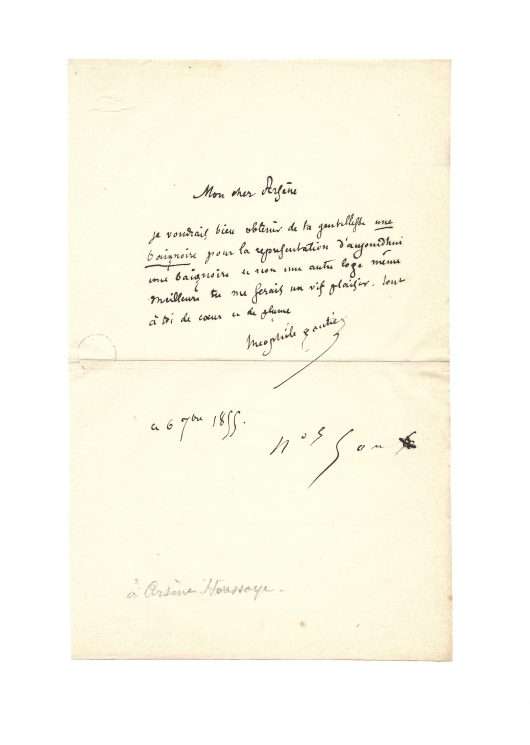 Mon cher Arsène
je voudrais bien obtenir de ta gentillesse une
baignoire pour la représentation d'aujourdhui
une baignoire et non une autre loge même
meilleure tu me ferais un vif plaisir. tout
à toi de cœur et de plume
Théophile Gautier
ce 6 7bre 1855.
N os 5 ou 6
à Arsène Houssaye.